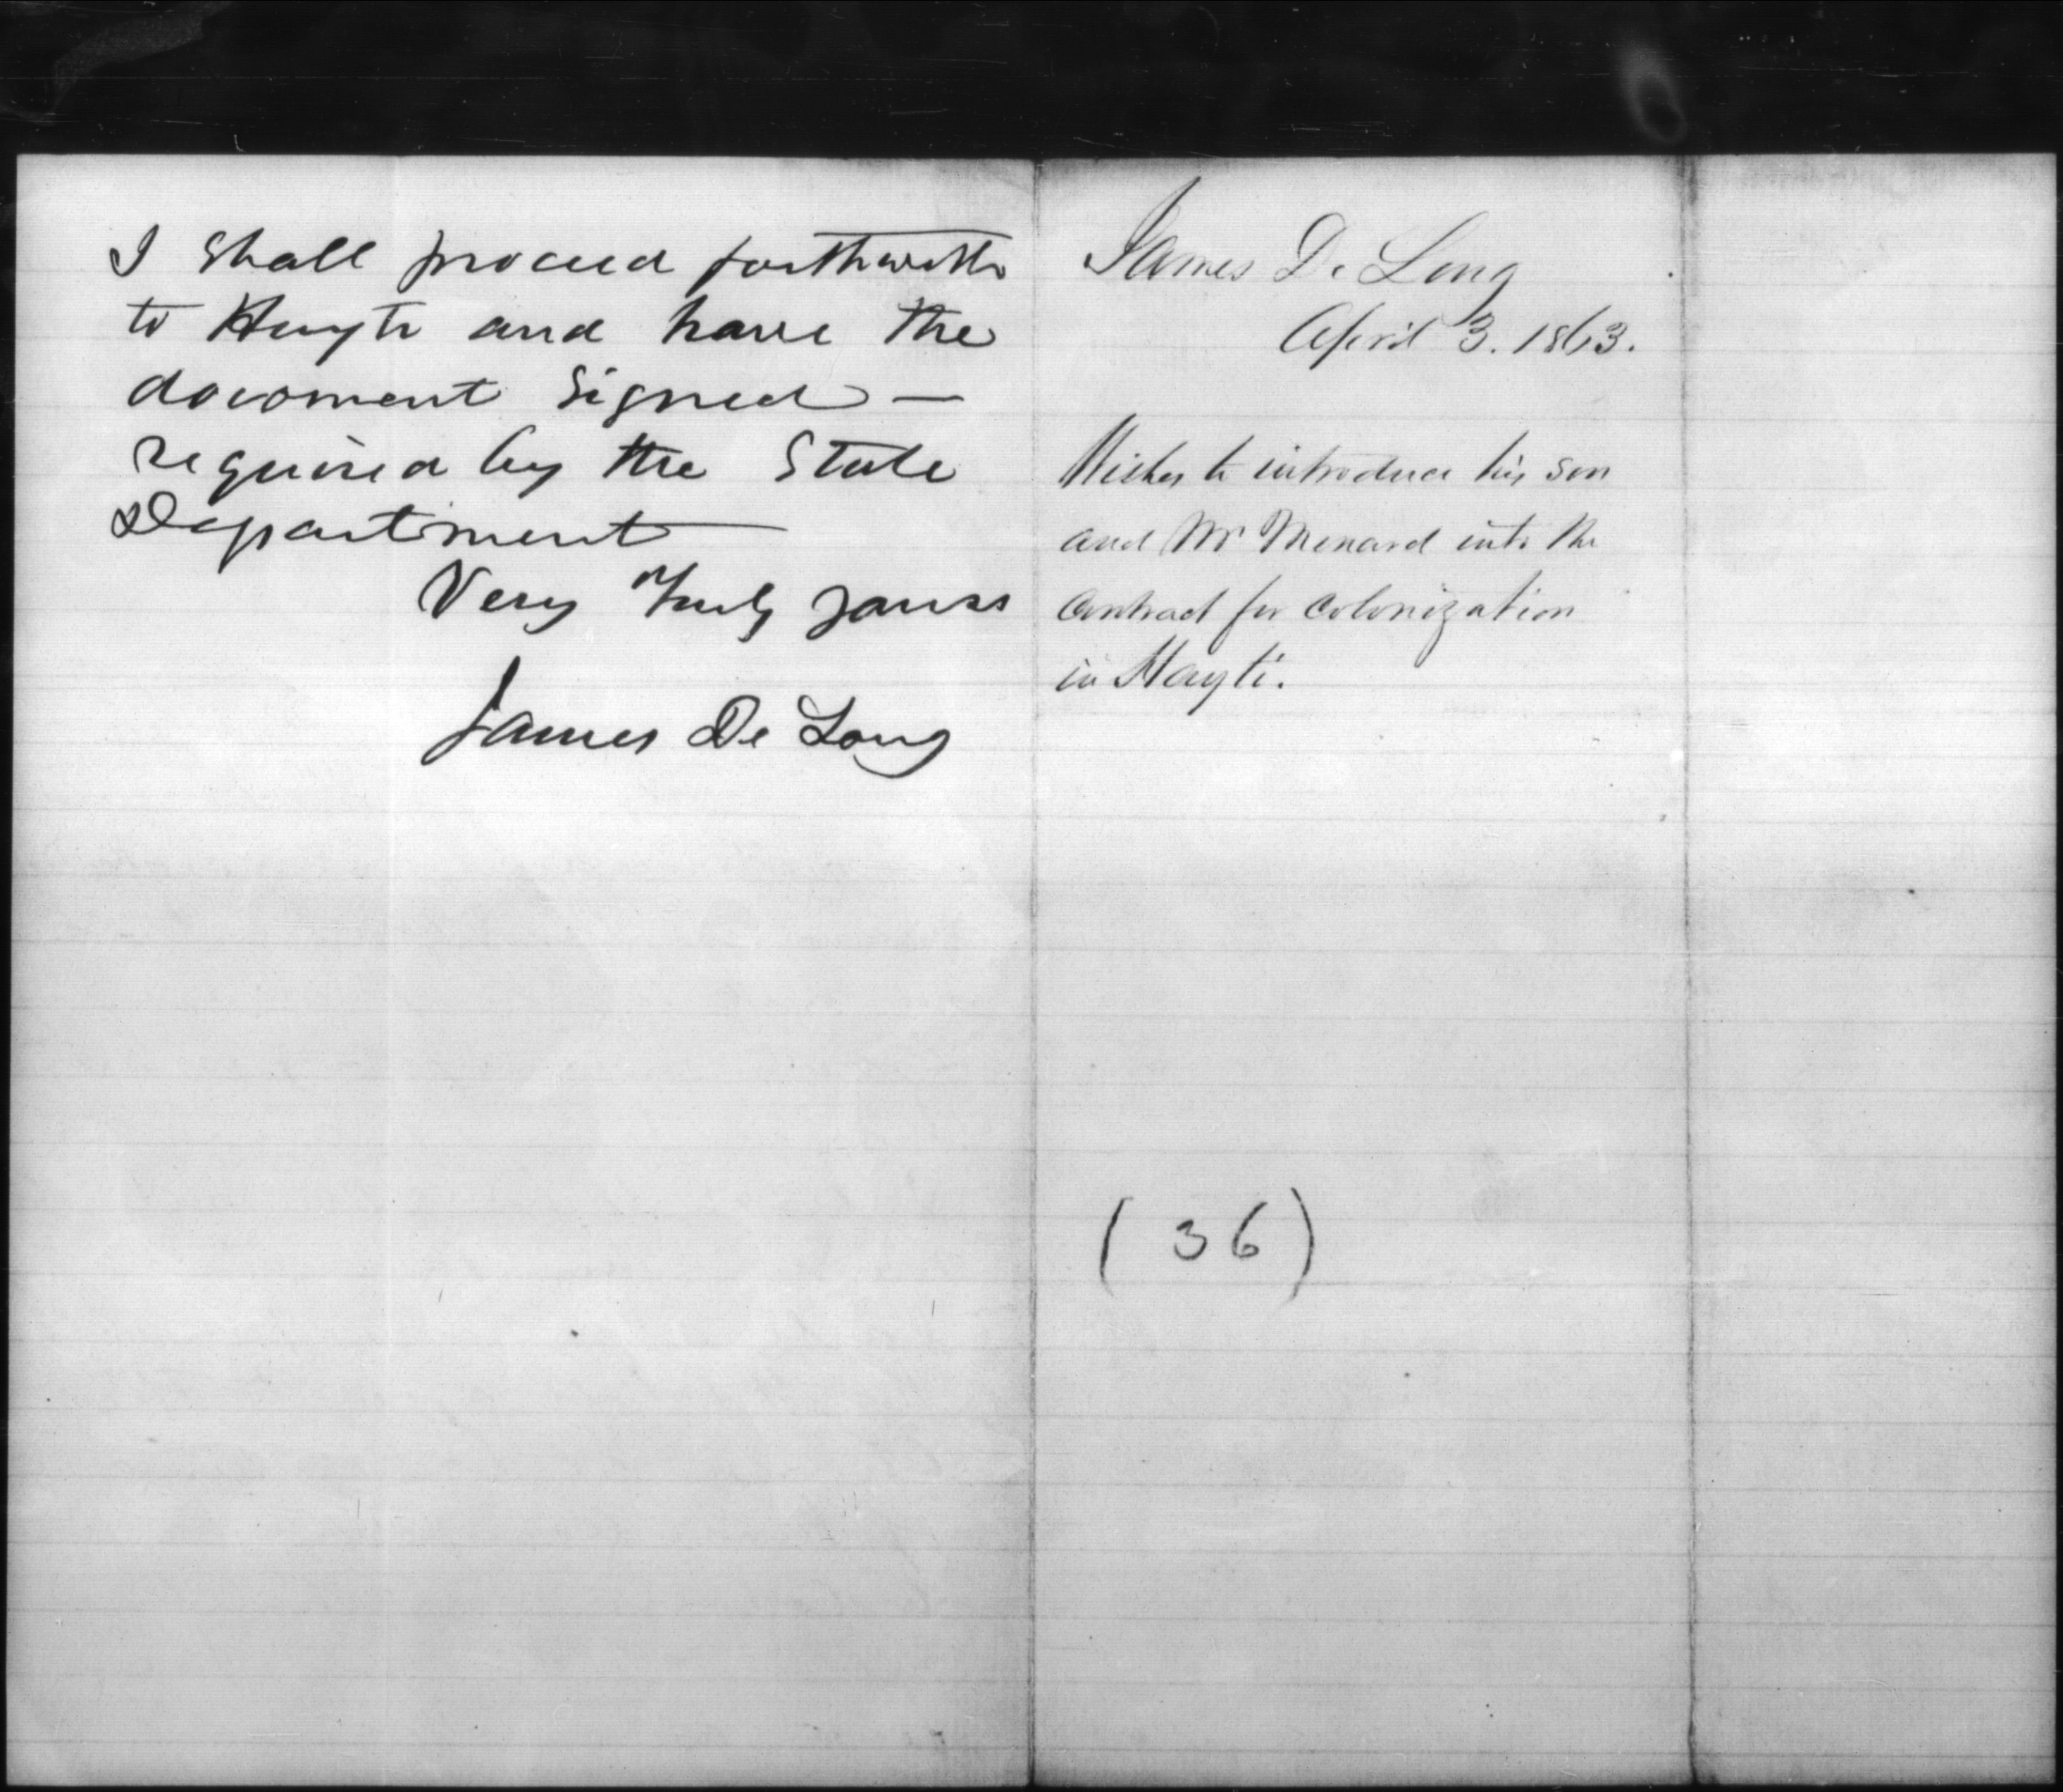 I Shall proceed forthwith
to Hayti and have the
docoment Signed —
required by the State
Department —
Very Truly yours
James De Long
James De Long
April 3. 1863.
Wishes to introduce his son
and Mr Menard into the
contract for colonization
in Hayti.
(36)